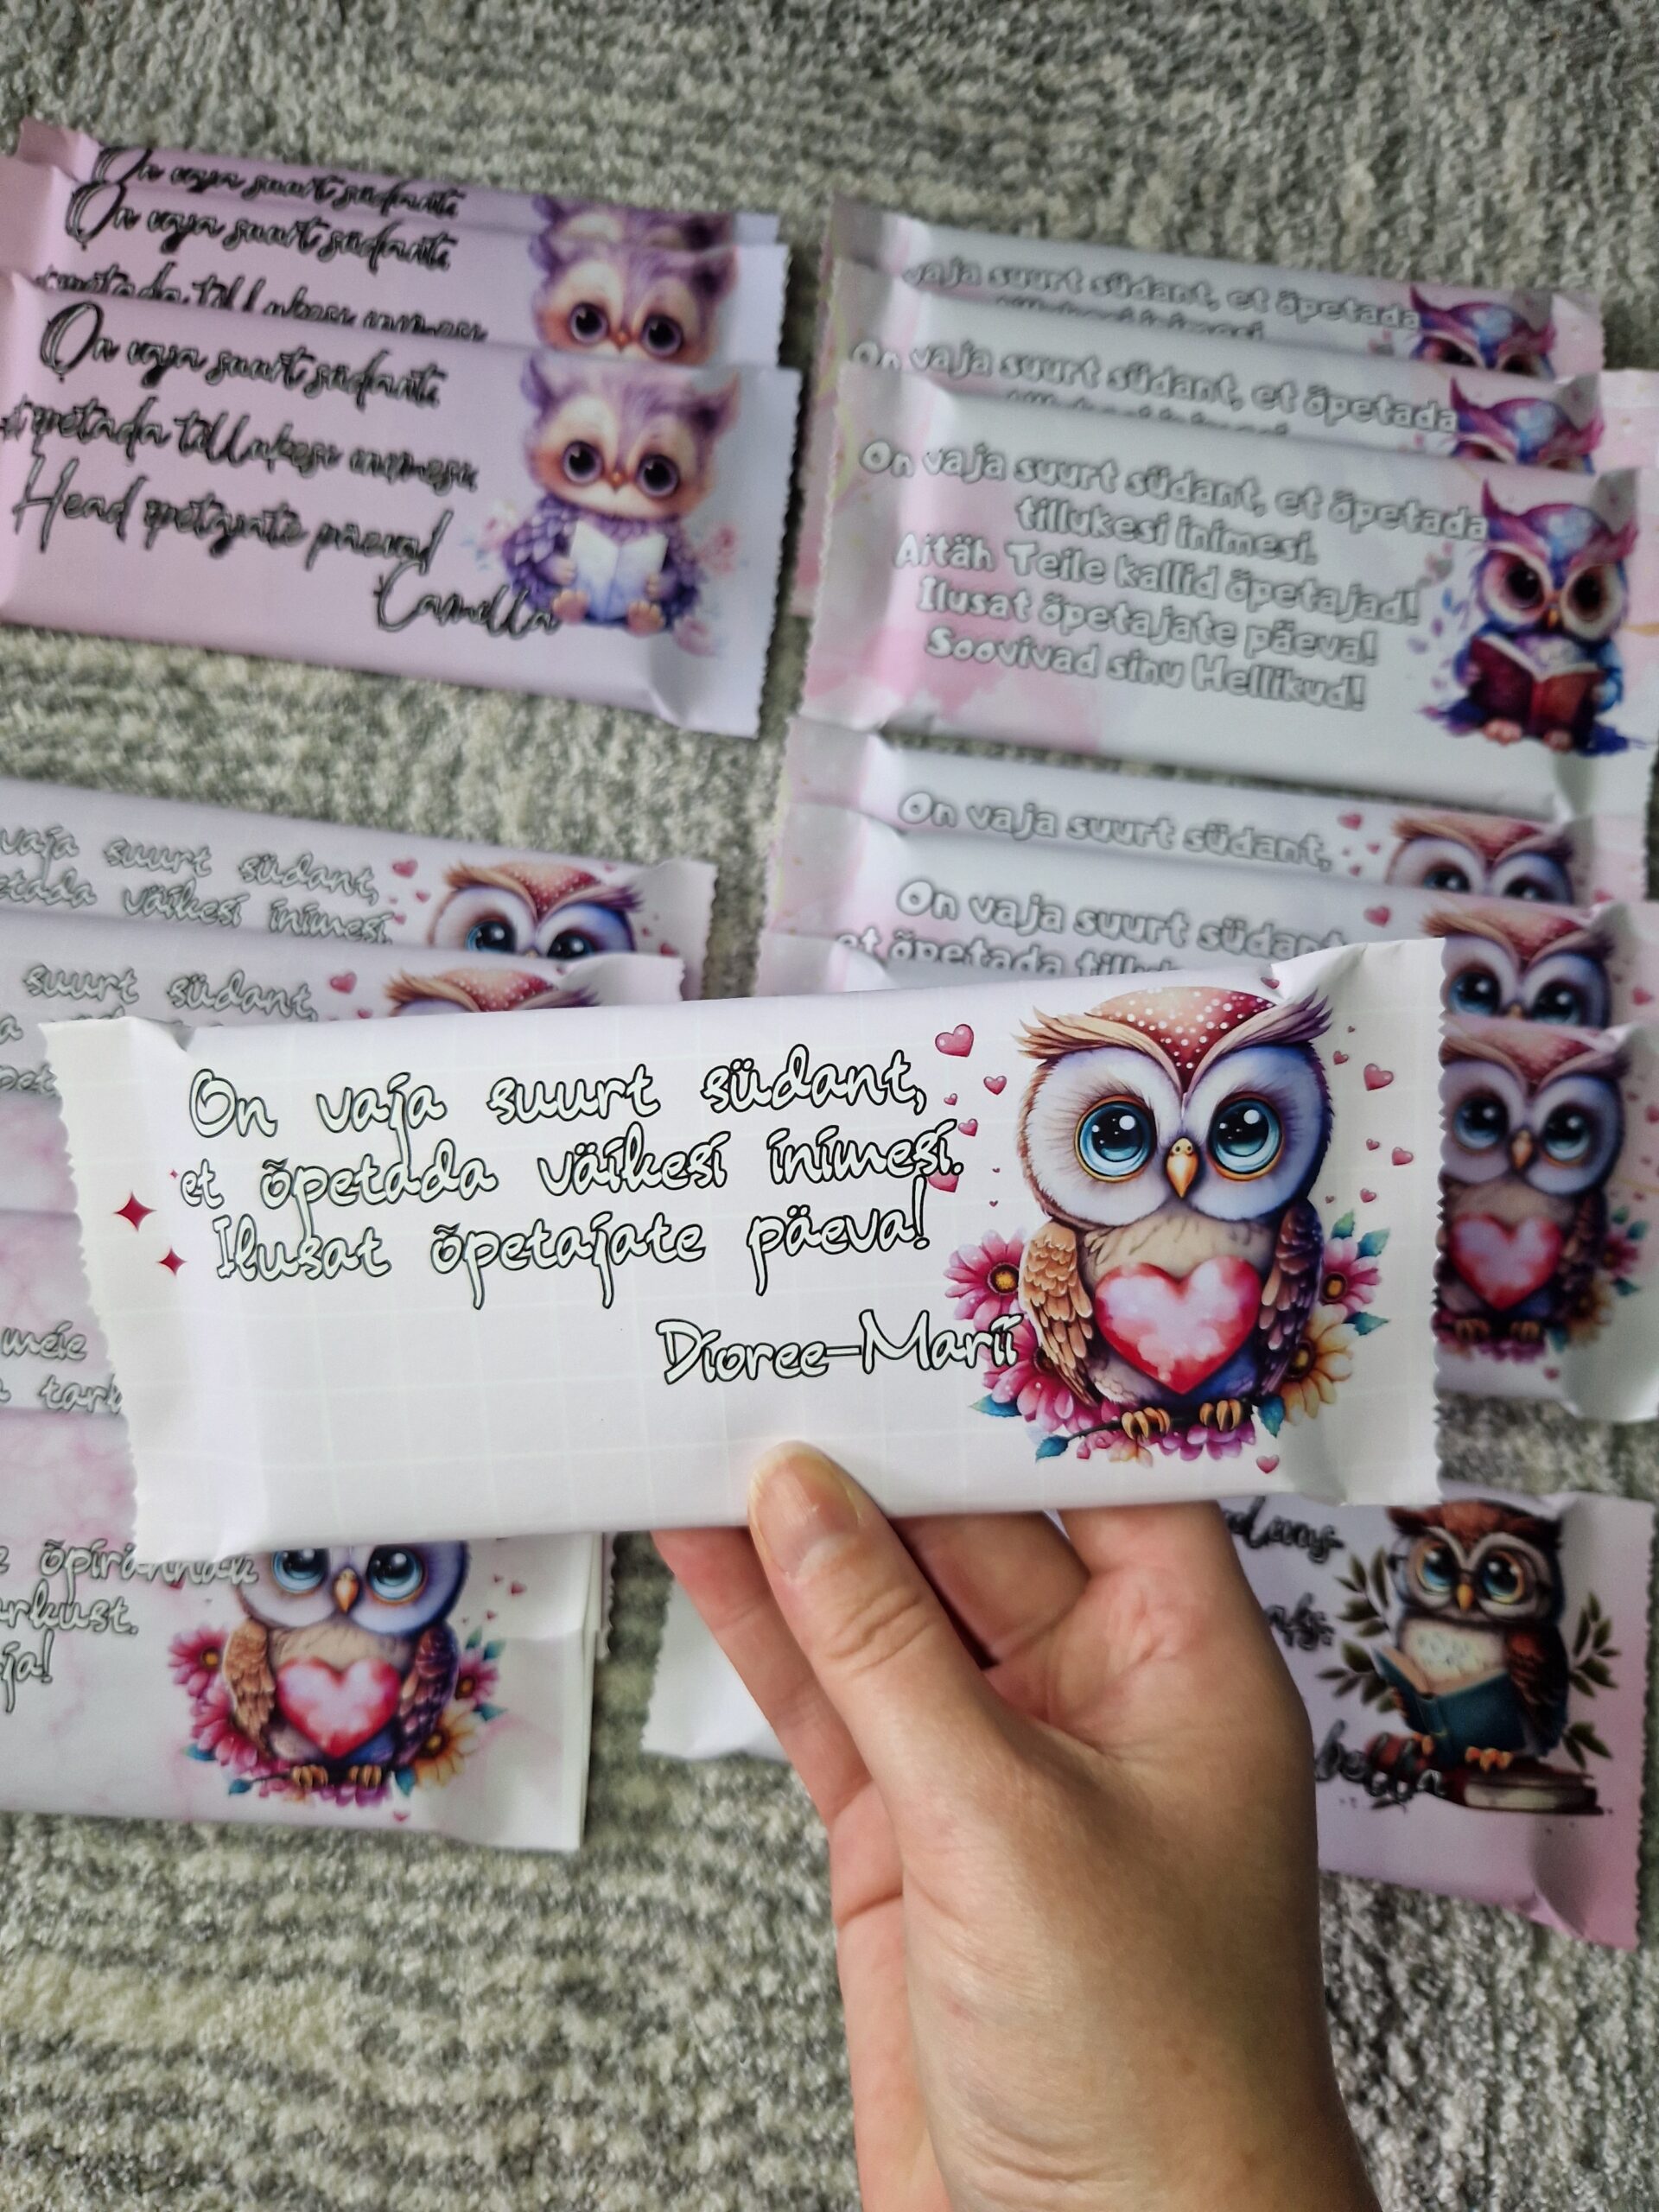 On vaja suurt südant
On vaja suurt südant
õpetada tillukesi inimesi
On vaja suurt südant
õpetada tillukesi inimesi
Head õpetajate päeva!
Camilla
vaja suurt südant, et õpetada
tillukesi inimesi.
On vaja suurt südant, et õpetada
On vaja suurt südant, et õpetada
tillukesi inimesi.
Aitäh Teile kallid õpetajad!
Ilusat õpetajate päeva!
Soovivad sinu Hellikud!
vaja suurt südant,
väikesi inimesi.
suurt südant,
On vaja suurt südant,
On vaja suurt südant
et õpetada
On vaja suurt südant,
et õpetada väikesi inimesi.
Ilusat õpetajate päeva!
Dioree-Marii
meie